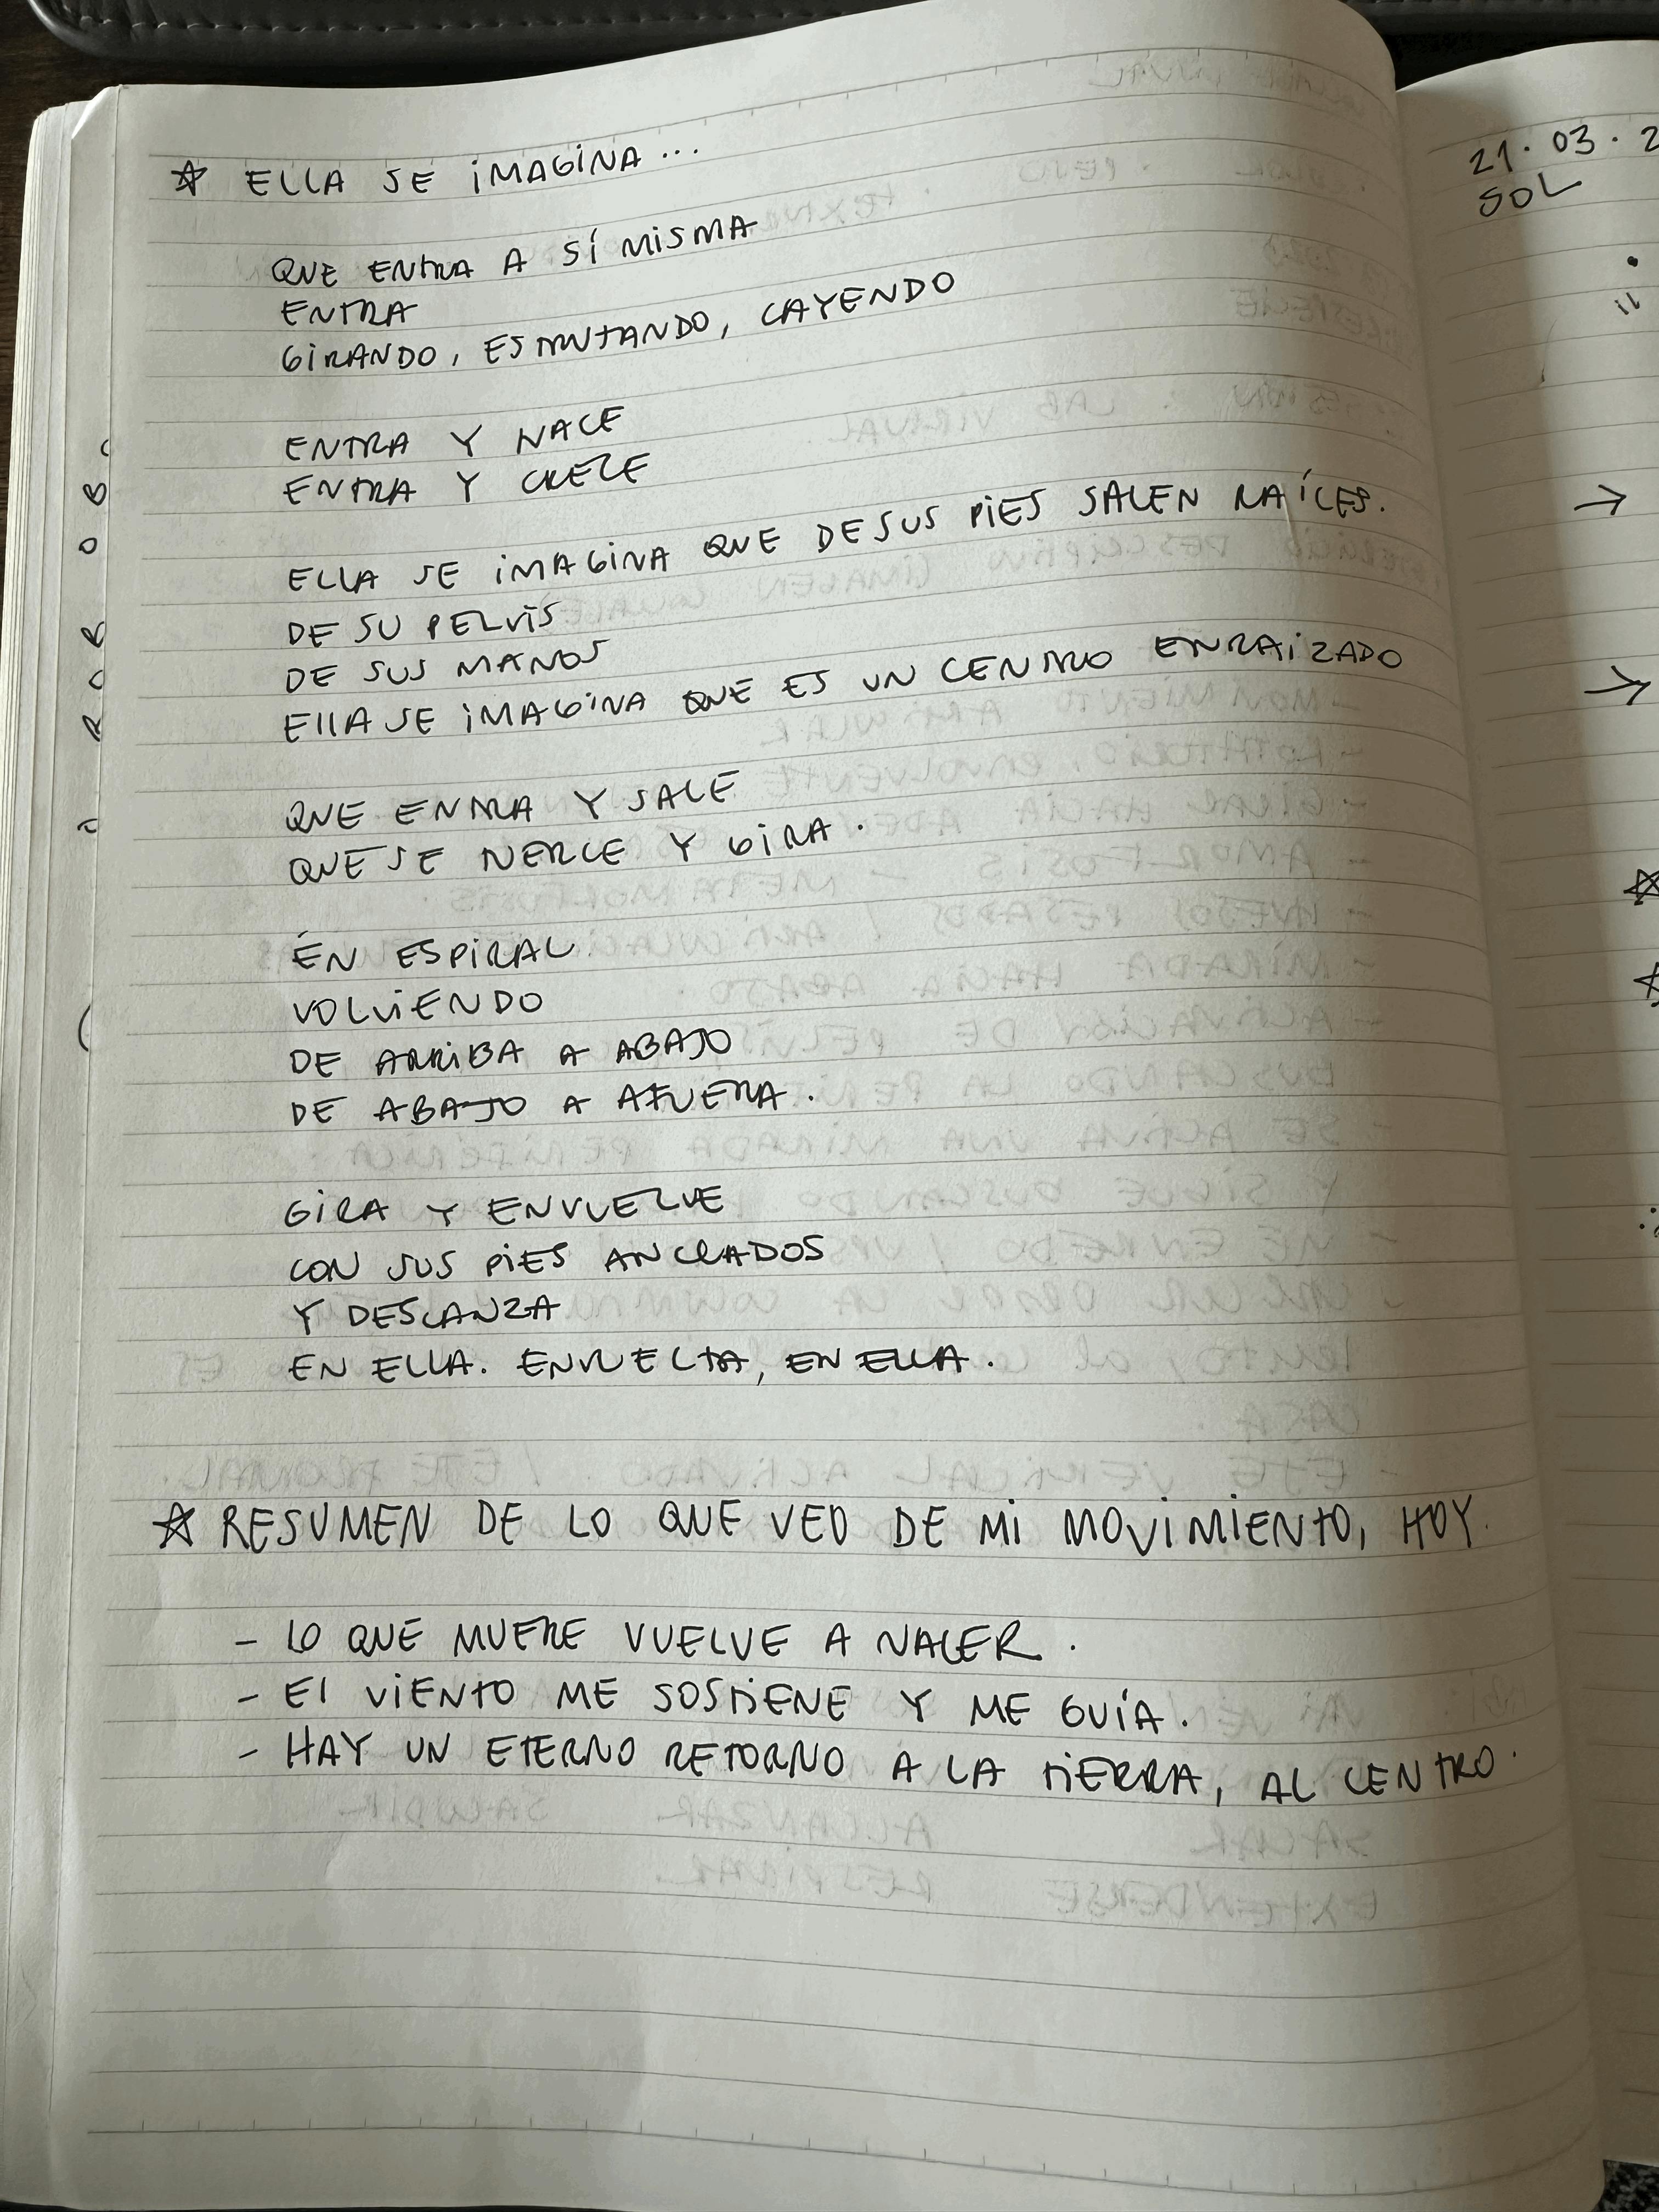 ☆ ELLA SE IMAGINA...
QUE ENTRA A SÍ MISMA
ENTRA
GIRANDO, ESTRUTANDO, CAYENDO
ENTRA Y NACE
ENTRA Y CRECE
ELLA SE IMAGINA QUE DE SUS PIES SALEN RAÍCES.
DE SU PELVIS
DE SUS MANOS
ELLA SE IMAGINA QUE ES UN CENTRO ENRAIZADO
QUE ENTRA Y SALE
QUE SE TUERCE Y GIRA.
EN ESPIRAL
VOLVIENDO
DE ARRIBA A ABAJO
DE ABAJO A AFUERA.
GIRA Y ENVUELVE
CON SUS PIES ANCLADOS
Y DESCANZA
EN ELLA. ENVUELTA, EN ELLA.
☆ RESUMEN DE LO QUE VEO DE MI MOVIMIENTO, HOY.
- LO QUE MUERE VUELVE A NACER.
- El VIENTO ME SOSTIENE Y ME GUÍA.
- HAY UN ETERNO RETORNO A LA TIERRA, AL CENTRO.
21.03.2
SOL